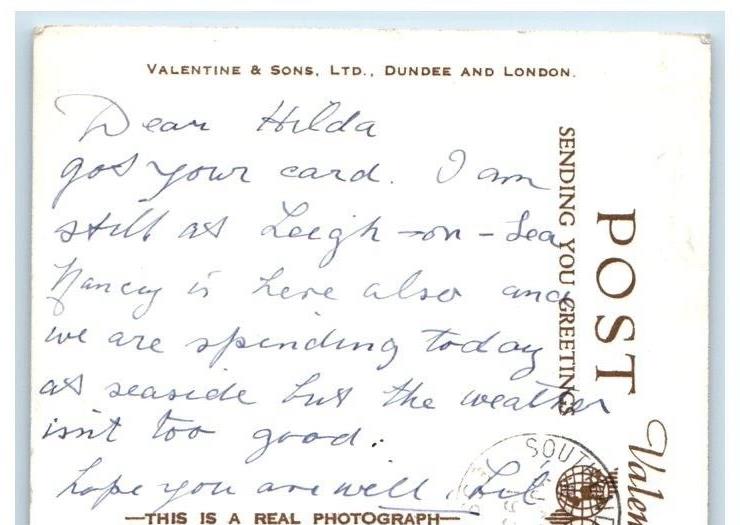 VALENTINE & SONS, LTD., DUNDEE AND LONDON.
Dear Hilda
got your card. I am
still at Leigh-on-Sea
Nancy is here also and
we are spending today
at seaside but the weather
isn't too good.
hope you are well. Lil
—THIS IS A REAL PHOTOGRAPH—
SENDING YOU GREETINGS
POST
Valen
SOUTH